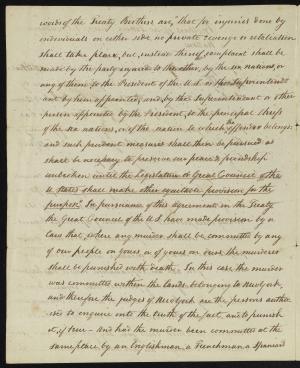 words of the Treaty Brothers are, 'that for injuries done by
individuals on either side no private revenge or retaliation
shall take place, but, instead thereof complaint shall be
made by the party injured to the other, by the six nations, or
any of them to the President of the U.S. or the Superintend-
ant by him appointed, and, by the Superintendant or other
person appointed by the President, to the principal chiefs
of the six nations, or of the nation to which the offender belongs:
and such prudent measures shall then be pursued as
shall be necessary to preserve our peace & friendship
unbroken until the Legislature or Great Council of the
U. States shall make other equitable provision for the
purpose'. In pursuance of this agreement in the Treaty
the Great Council of the U.S. have made provision by a
law that, where any murder shall be committed by any
of our people on yours, or of yours on ours, the murderer
shall be punished with death. In this case the murder
was committed within the lands belonging to New York,
and therefore the judges of New York are the persons author-
ised to enquire into the truth of the fact, and to punish
it, if true – And has the murder been committed at the
same place by an Englishman, a Frenchman, a Spaniard